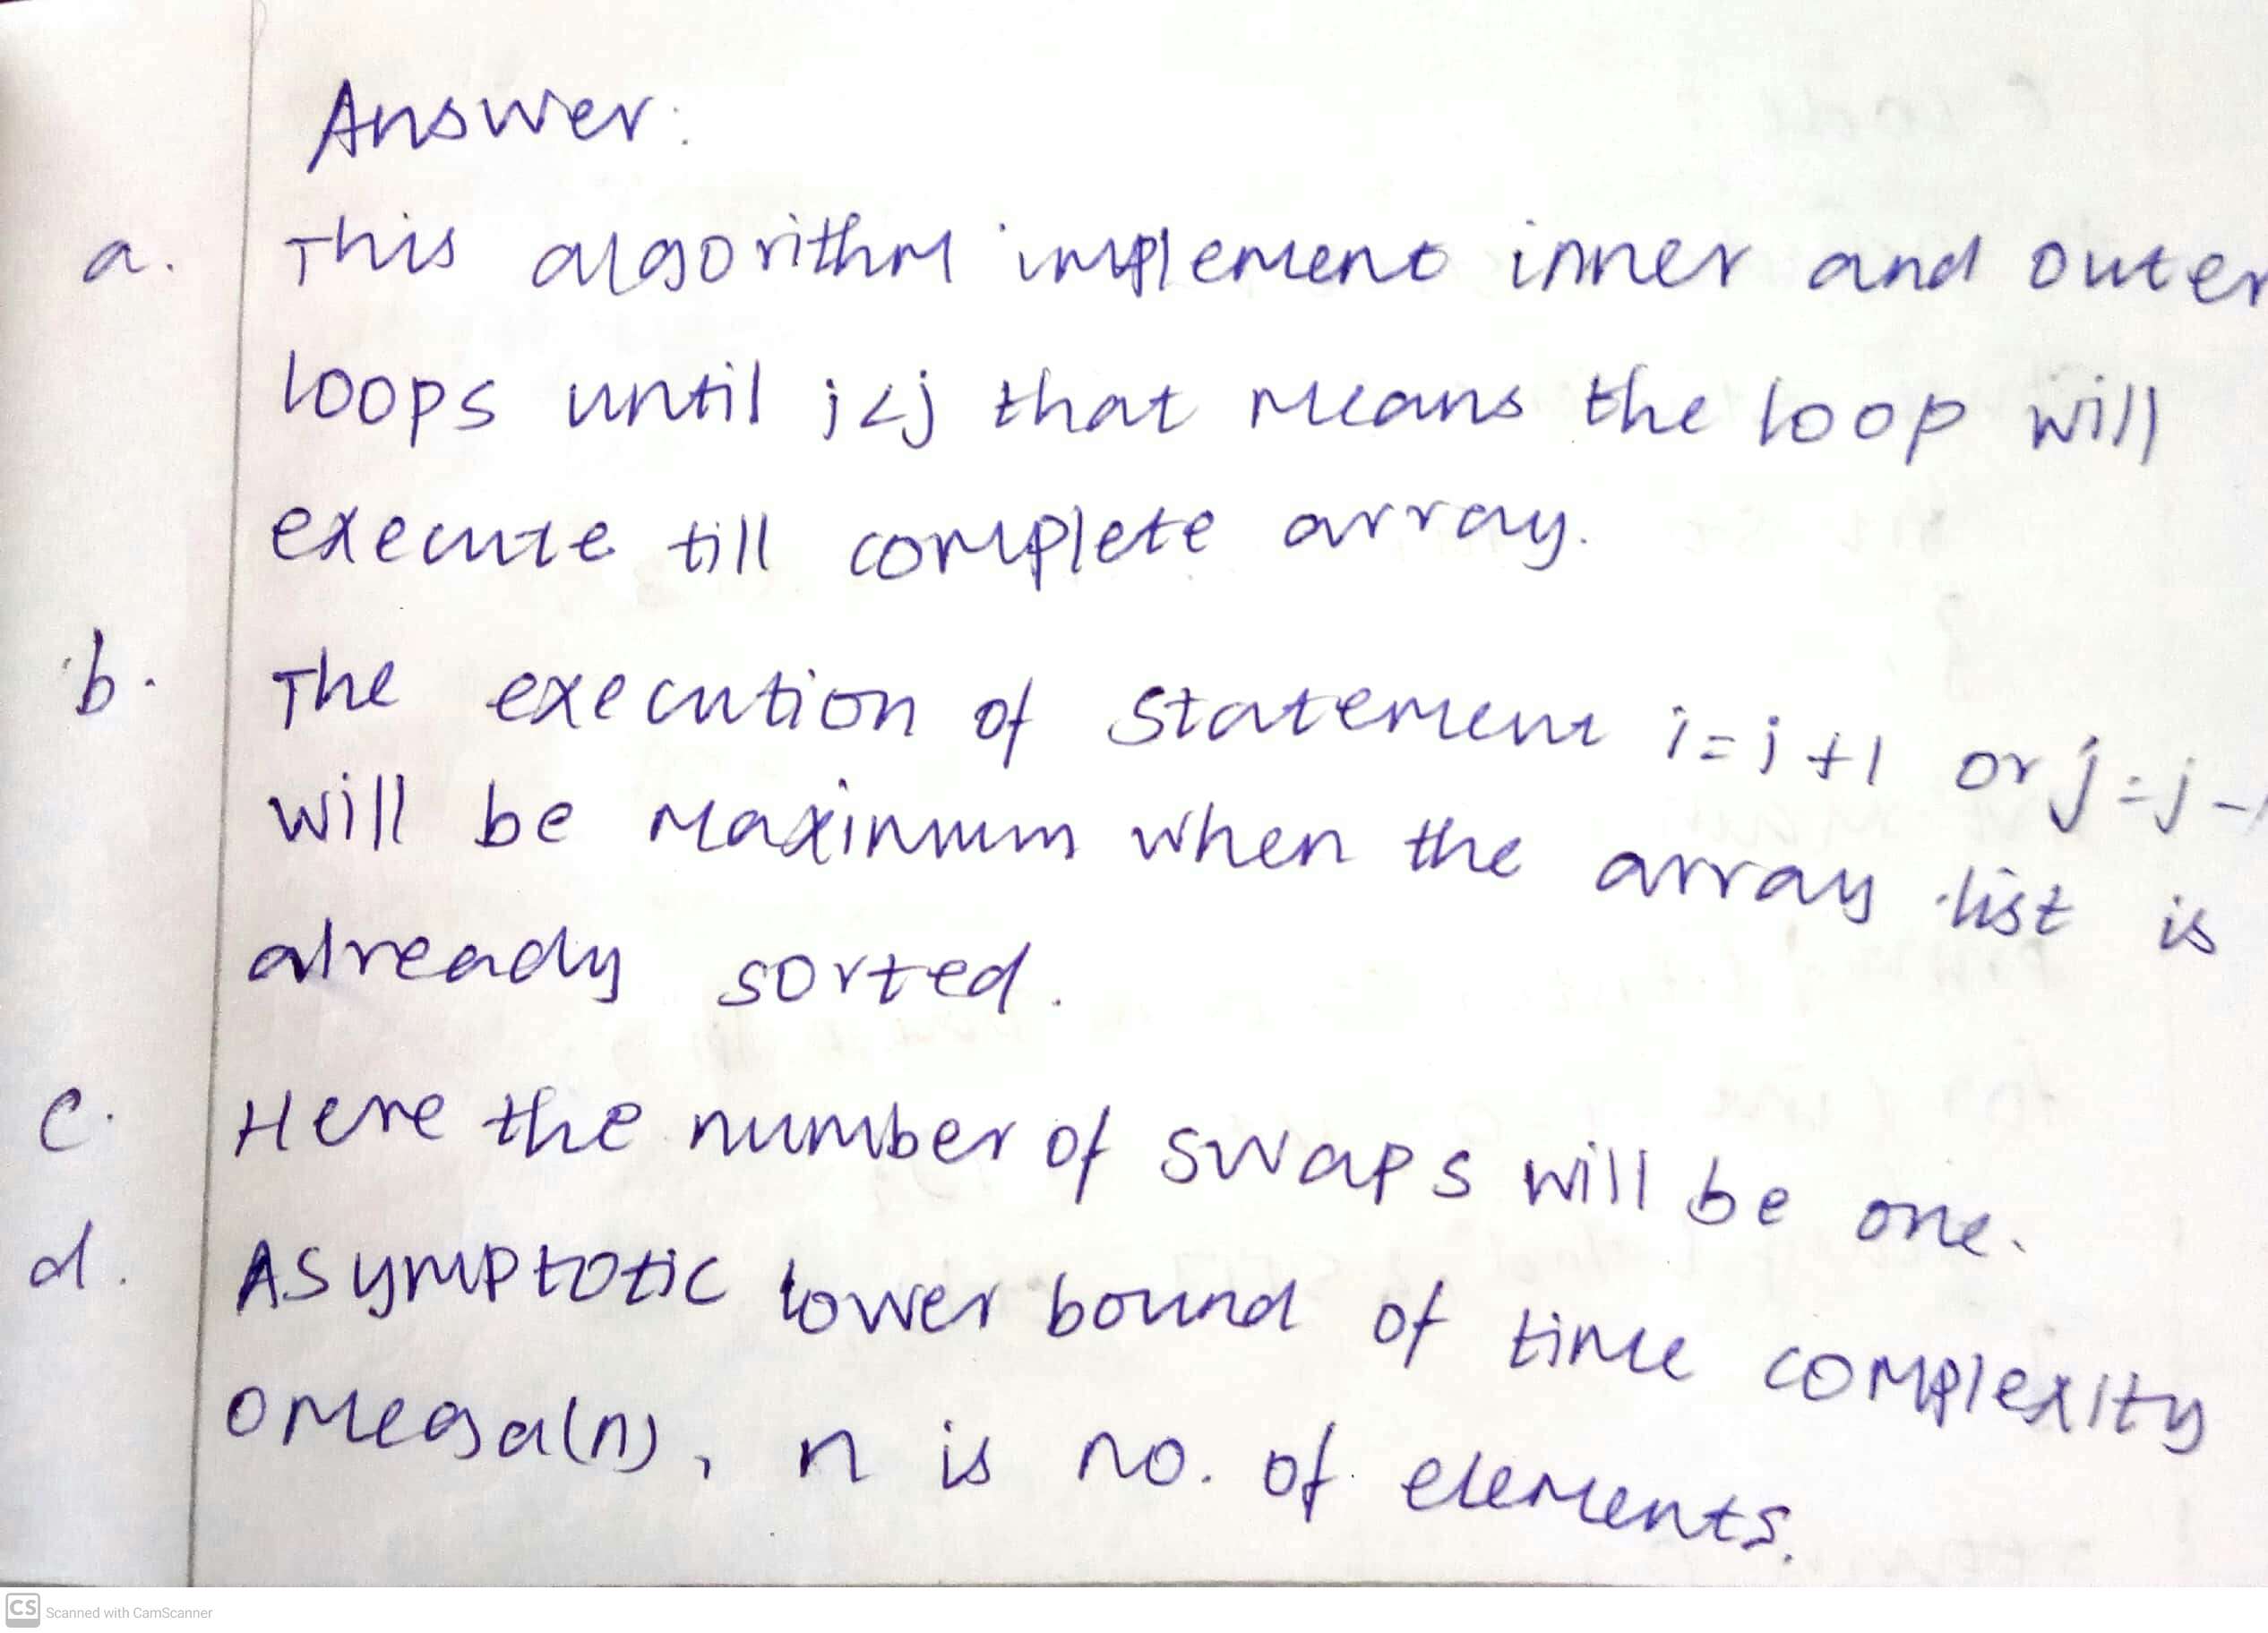 Answer:
a. This algorithm implement inner and outer
loops until i<j that means the loop will
execute till complete array.
b. The execution of statement i=i+1 or j=j-1
will be maximum when the array list is
already sorted.
c. Here the number of swaps will be one.
d. Asymptotic lower bound of time complexity
omega(n), n is no. of elements.
CS Scanned with CamScanner